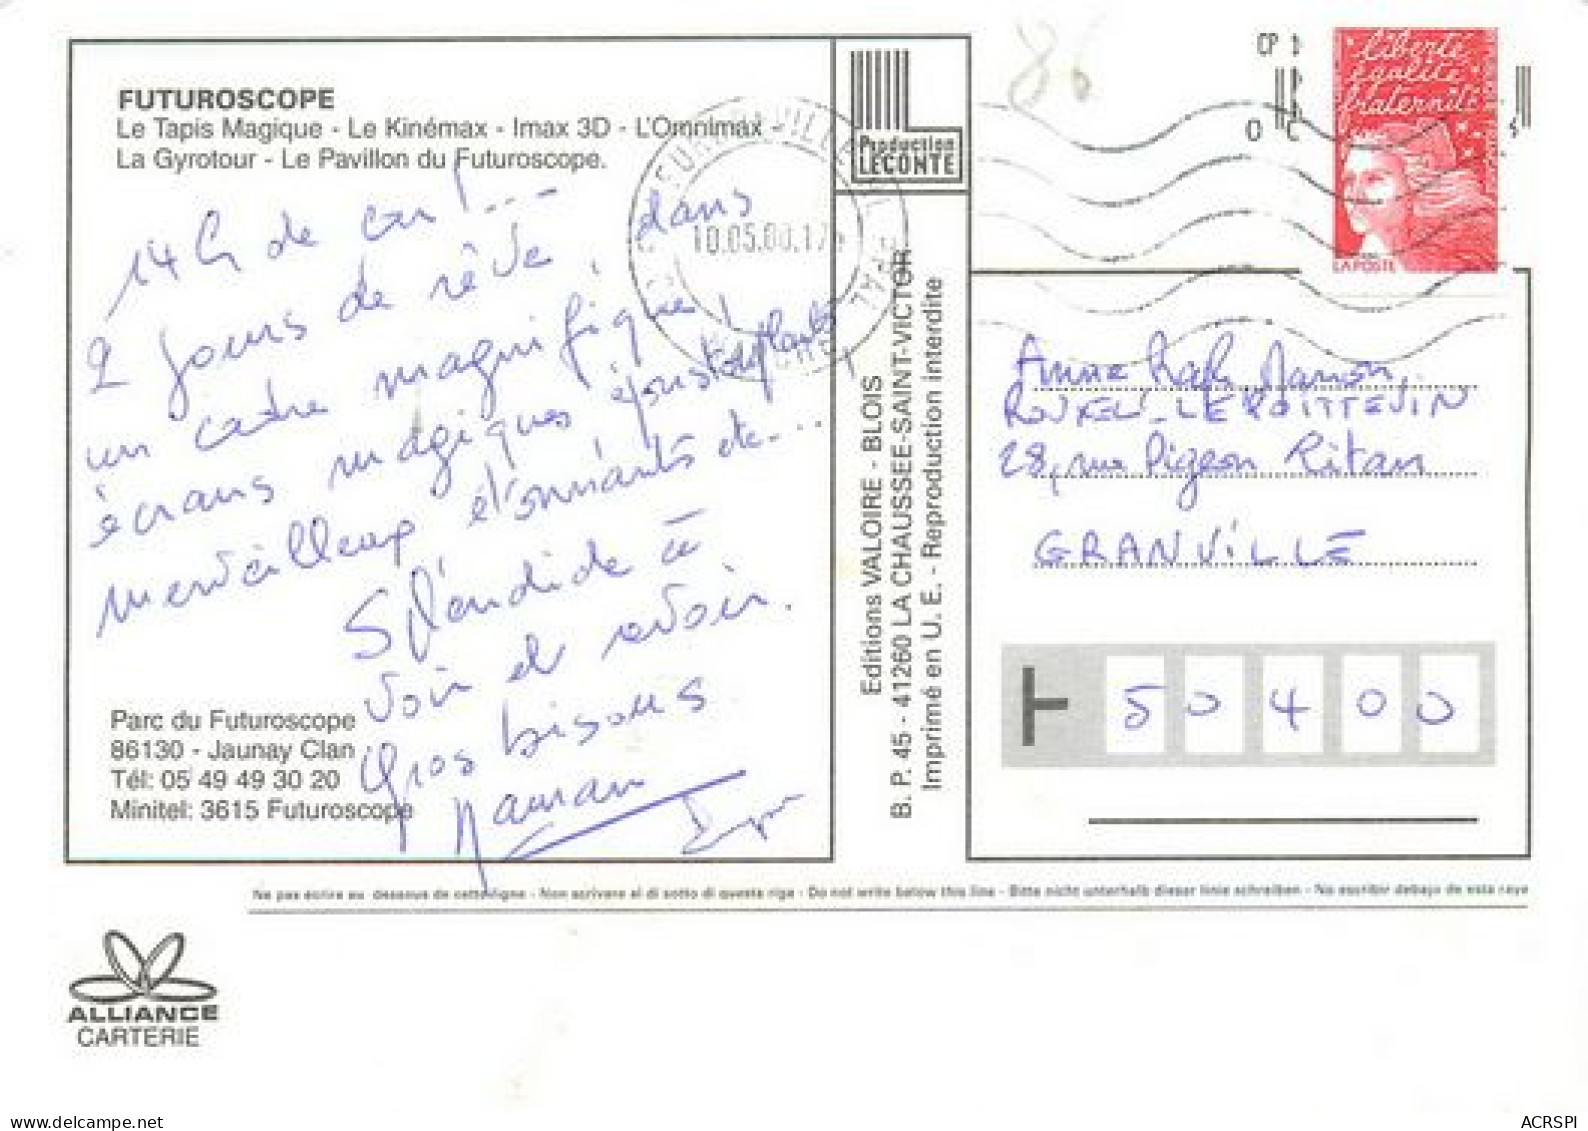 FUTUROSCOPE
Le Tapis Magique - Le Kinémax - Imax 3D - L'Omnimax -
La Gyrotour - Le Pavillon du Futuroscope.
14 h de car !...
2 jours de rêve, dans
un cadre magnifique!
écrans magiques époustouflants,
merveilleux étonnants etc...
Splendide à
voir et revoir.
Gros bisous
Maman
Parc du Futuroscope
86130 - Jaunay Clan
Tél: 05 49 49 30 20
Minitel: 3615 Futuroscope
Production
LECONTE
Editions VALOIRE - BLOIS
B. P. 45 - 41260 LA CHAUSSEE-SAINT-VICTOR
Imprimé en U. E. - Reproduction interdite
86
10.05.00.17
liberté
égalité
fraternité
LA POSTE
Anne Manon,
LEPOITTEVIN
28, rue Pigeon Litan
GRANVILLE
50400
Ne pas écrire au dessous de cette ligne - Non scrivere al di sotto di questa riga - Do not write below this line - Bitte nicht unterhalb dieser linie schreiben - No escribir debajo de esta raya
ALLIANCE
CARTERIE
www.delcampe.net
ACRSPI